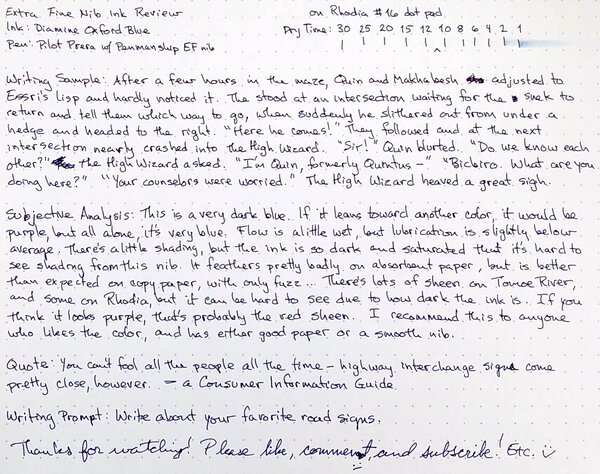 Extra Fine Nib Ink Review on Rhodia #16 dot pad
Ink: Diamine Oxford Blue Dry Time: 30 25 20 15 12 10 8 6 4 2 1
Pen: Pilot Prera w/ Penmanship EF nib
Writing Sample: After a few hours in the maze, Quin and Makhabesh adjusted to
Essri's lisp and hardly noticed it. The stood at an intersection waiting for the snek to
return and tell them which way to go, when suddenly he slithered out from under a
hedge and headed to the right. "Here he comes!" They followed and at the next
intersection nearly crashed into the High Wizard. "Sir!" Quin blurted. "Do we know each
other?" The High Wizard asked. "I'm Quin, formerly Quintus –" "Bicbiro. What are you
doing here?" "Your counselors were worried." The High Wizard heaved a great sigh.
Subjective Analysis: This is a very dark blue. If it leans toward another color, it would be
purple, but all alone, it's very blue. Flow is a little wet, but lubrication is slightly below
average. There's a little shading, but the ink is so dark and saturated that it's hard to
see shading from this nib. It feathers pretty badly on absorbent paper, but is better
than expected on copy paper, with only fuzz... There's lots of sheen on Tomoe River,
and some on Rhodia, but it can be hard to see due to how dark the ink is. If you
think it looks purple, that's probably the red sheen. I recommend this to anyone
who likes the color, and has either good paper or a smooth nib.
Quote: You can't fool all the people all the time – highway interchange signs come
pretty close, however. – a Consumer Information Guide
Writing Prompt: Write about your favorite road signs.
Thanks for watching! Please like, comment, and subscribe! Etc. :)